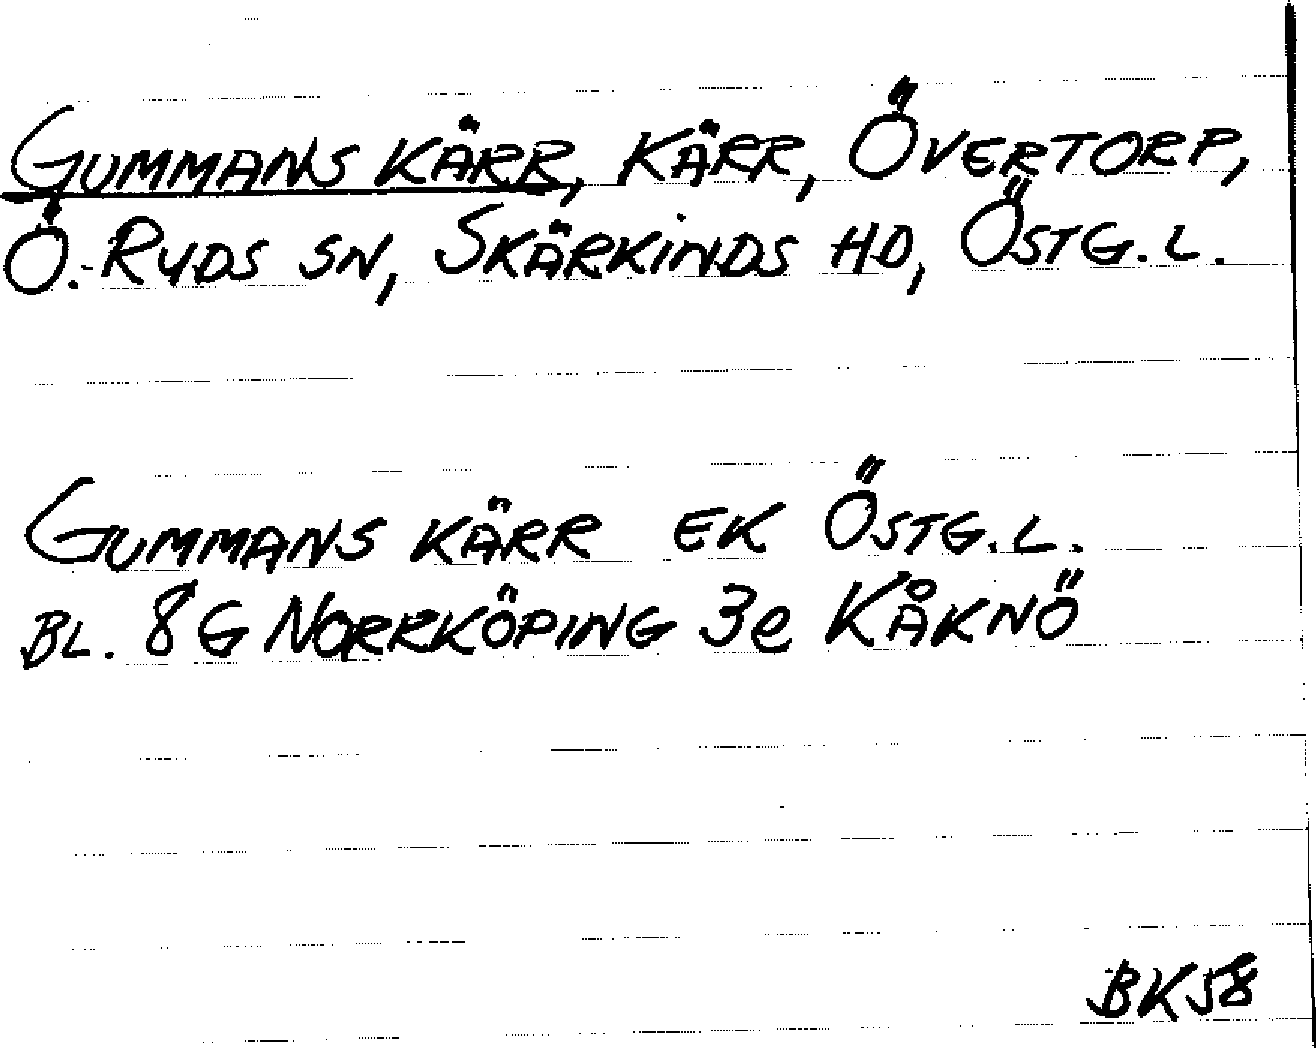 GUMMANS KÄRR, KÄRR, ÖVERTORP,
Ö. RYDS SN, SKÄRKINDS HD, ÖSTG.L.
GUMMANS KÄRR EK ÖSTG.L.
BL. 8G NORRKÖPING 3e KÅKNÖ
BK58